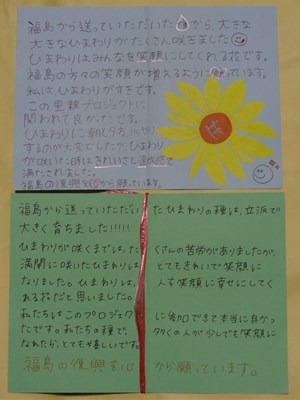 福島から送っていただいた から、大きな
大きなひまわりがたくさん咲きました
ひまわりはみんなを笑顔にしてくれる花です。
福島の方々の笑顔が増えるように願っています。
私は、ひまわりがすきです。
この里親プロジェクトに
関われて良かったです。
ひまわりに
するのが大変でしたがひまわり
が咲いた時はきれいさと達成感で
満たされました。
福島の復興を心から願っています。
福島から送っていただいたひまわりの種は、立派で
大きく育ちました!!!!!
ひまわりが咲くまでは、たくさんの苦労がありましたが、
満開に咲いたひまわりはとてもきれいで笑顔に
なりました。ひまわりは、人を笑顔に幸せにしてく
れる花だと思いました。
私たちはこのプロジェクトに参加できて本当に良かっ
たです。私たちの種で、多くの人が少しでも笑顔に
なれたら、とても嬉しいです。
福島の復興を心から願っています。